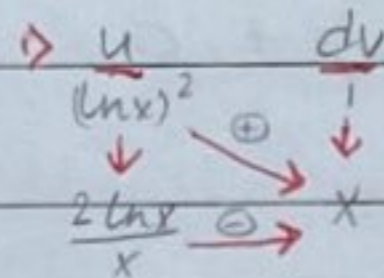 u dv
(lnx)² 1
⊕
2 lnx ⊖ x
x